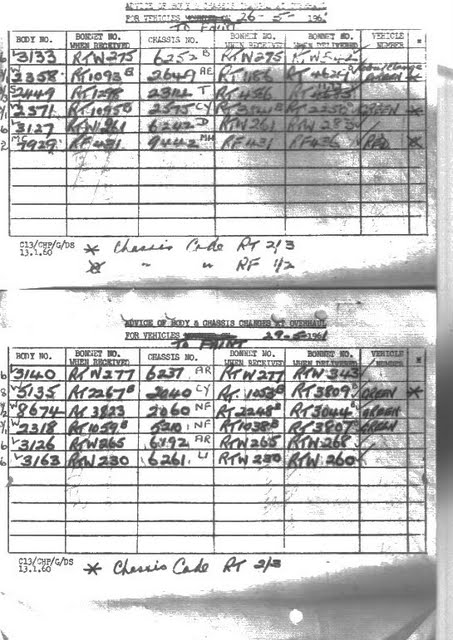 ADVICE OF BODY & CHASSIS CHANGES AT OVERHAUL
FOR VEHICLES 26-5-196
TO PAINT
BODY NO. BONNET NO. WHEN RECEIVED CHASSIS NO. BONNET NO. WHEN RECEIVED BONNET NO. WHEN DELIVERED VEHICLE NUMBER *
6 L 3133 RTW275 6252 B RTW275 RTW542
3358 RT1093 B 2649 AE RT1186 GREEN
2449 RT1298 2314 T RT486
W 2371 RT1095 B 2575 CY RT2250 GREEN *
6 L 3127 RTW261 6242 D RTW261 RTW283
2 MC 7929 RF431 9442 MH RF431 RF436 RED *
C13/CHP/G/DS
13.1.60
* Chassis Code RT 2/3
" " RF 1/2
ADVICE OF BODY & CHASSIS CHANGES AT OVERHAUL
FOR VEHICLES 29-5-1961
TO PAINT
BODY NO. BONNET NO. WHEN RECEIVED CHASSIS NO. BONNET NO. WHEN RECEIVED BONNET NO. WHEN DELIVERED VEHICLE NUMBER *
6 L 3140 RTW277 6237 AR RTW277 RTW343
8 W 5135 RT2267 B 2040 CY RT1053 B RT3809 B GREEN *
W 8674 RT3823 2060 NF RT2248 B RT3044 B GREEN
W 2318 RT1059 B 5210 NF RT1038 B RT3807 B GREEN
6 L 3126 RTW265 6192 AR RTW265 RTW268
6 L 3163 RTW230 6261 LI RTW230 RTW260
C13/CHP/G/DS
13.1.60
* Chassis Code RT 2/3